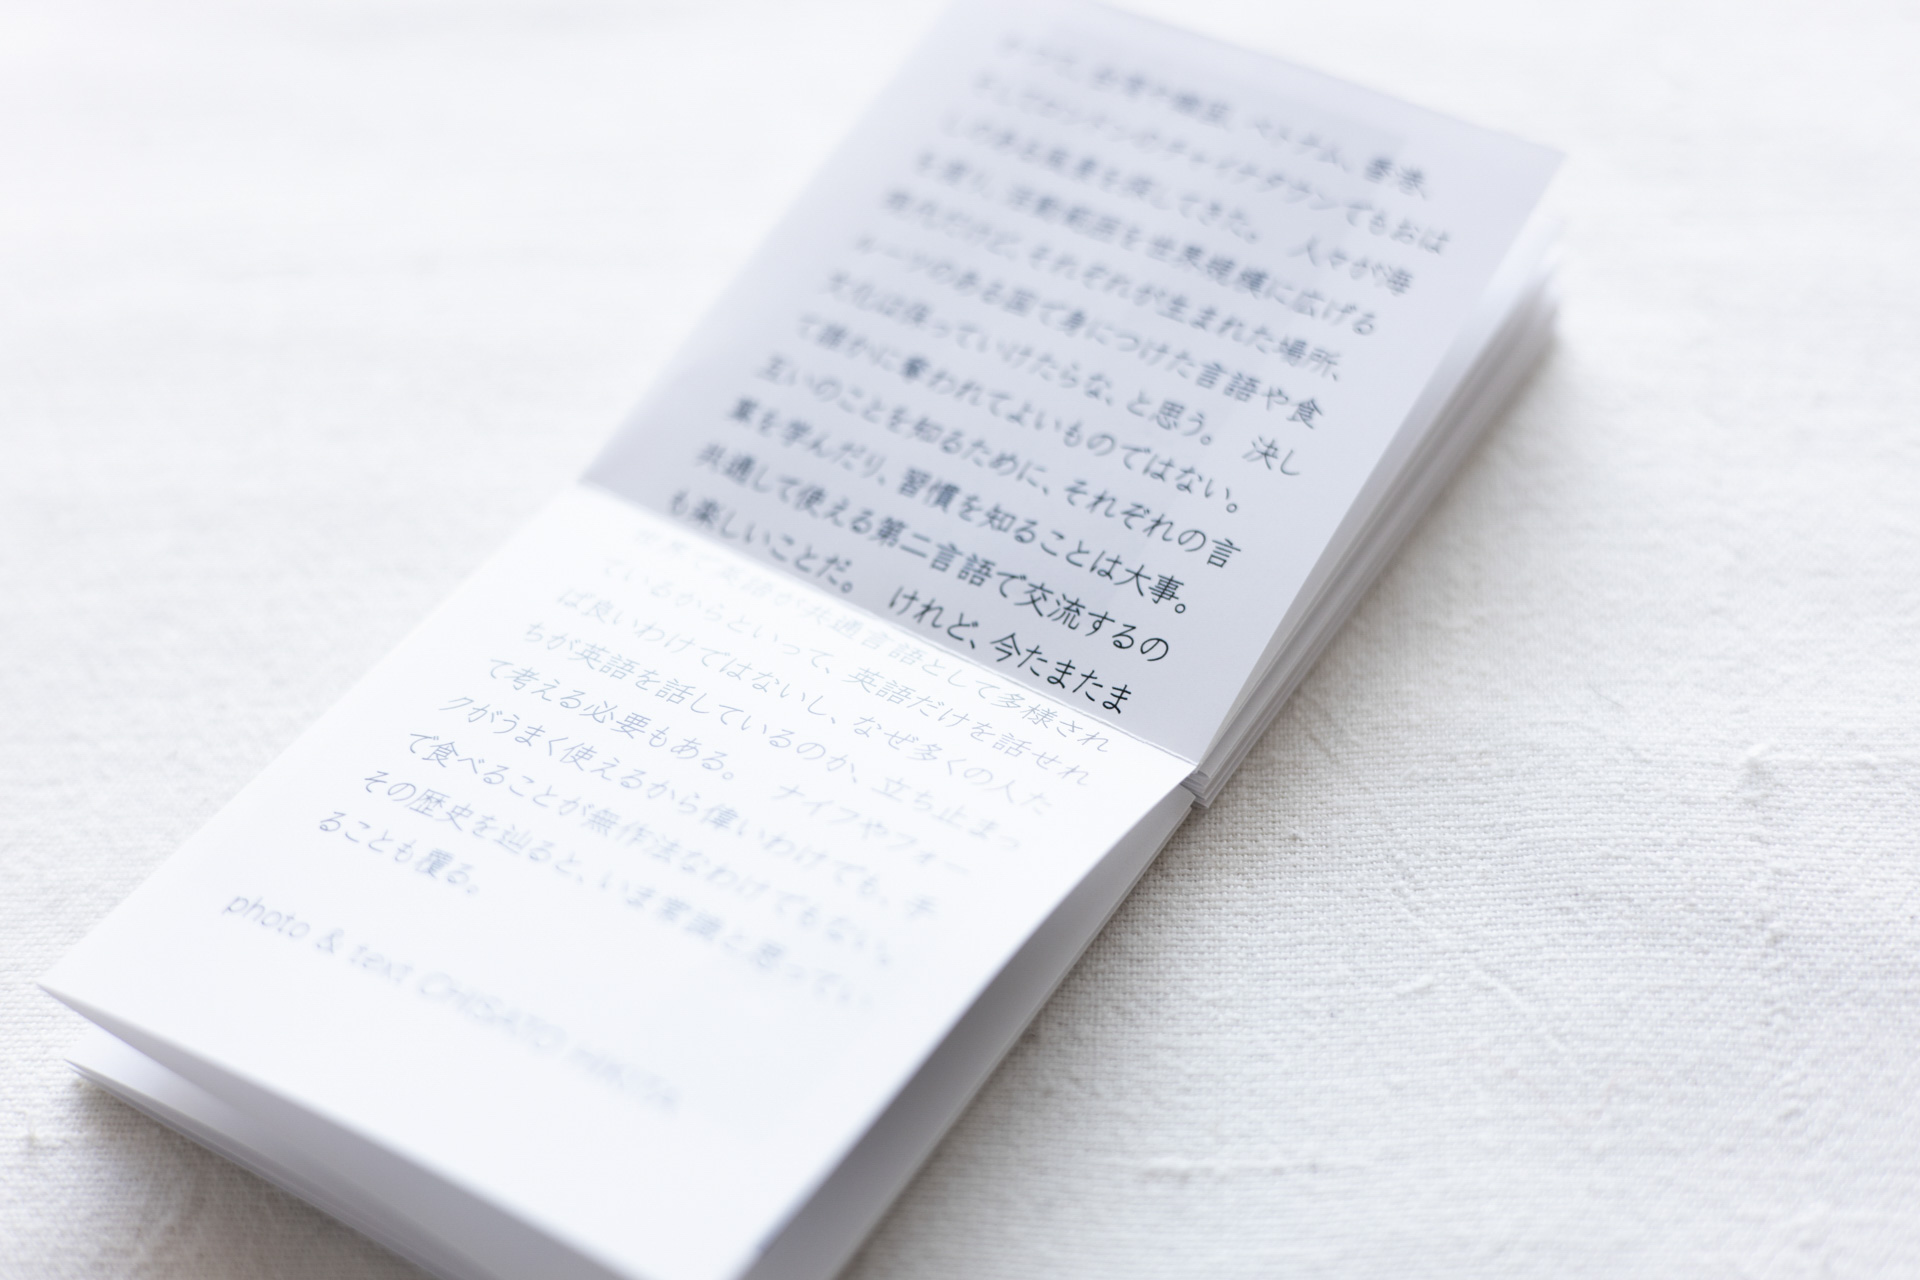 や ベトナム、香港、
のチャイナタウンでもおは
しのある風景を探してきた。 人々が海
を渡り、活動範囲を世界規模に広げる
流れだけど、それぞれが生まれた場所、
ルーツのある国で身につけた言語や食
文化は保っていけたらな、と思う。 決し
て誰かに奪われてよいものではない。
互いのことを知るために、それぞれの言
葉を学んだり、習慣を知ることは大事。
共通して使える第二言語で交流するの
も楽しいことだ。 けれど、今たまたま
英語が共通言語として多様され
ているからといって、英語だけを話せれ
ば良いわけではないし、なぜ多くの人た
ちが英語を話しているのか、立ち止まっ
て考える必要もある。 ナイフやフォー
クがうまく使えるから偉いわけでも、手
で食べることが無作法なわけでもない。
その歴史を辿ると、いま常識と思ってい
ることも覆る。
photo & text CHISATO HIKITA